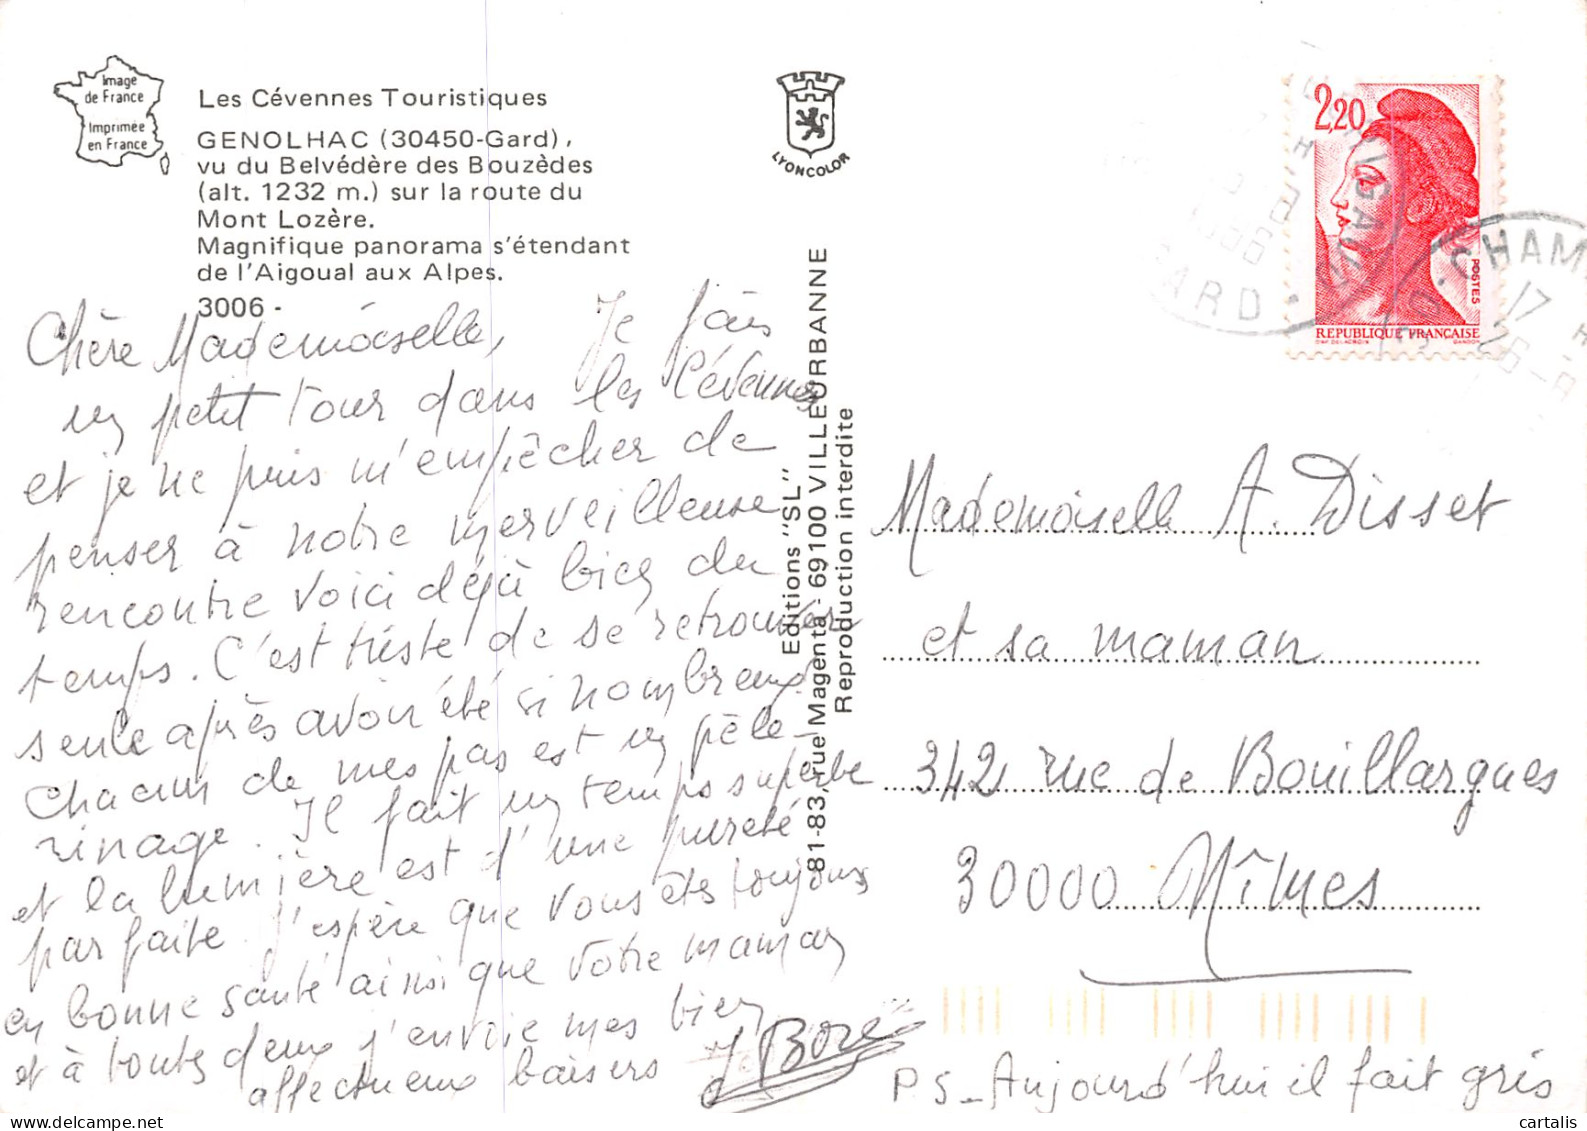 Image
de France
Imprimée
en France
Les Cévennes Touristiques
GENOLHAC (30450-Gard),
vu du Belvédère des Bouzèdes
(alt. 1232 m.) sur la route du
Mont Lozère.
Magnifique panorama s'étendant
de l'Aigoual aux Alpes.
3006 -
Chère Mademoiselle, Je fais
un petit tour dans les Cévennes
et je ne puis m'empêcher de
penser à notre merveilleuse
rencontre voici déjà bien du
temps. C'est triste de se retrouver
seule après avoir été si nombreux
Chacun de mes pas est un pèle-
rinage. Il fait un temps superbe
et la lumière est d'une pureté
parfaite. J'espère que vous êtes toujours
en bonne santé ainsi que votre maman
et à toutes deux j'envoie mes bien
affectueux baisers J. Boré
LYONCOLOR
Editions "SL"
81-83, rue Magenta - 69100 VILLEURBANNE
Reproduction interdite
2,20
POSTES
REPUBLIQUE FRANÇAISE
D'AP. DELACROIX GANDON
ARD
CHAM
17 H
Mademoiselle A. Disset
et sa maman
342 rue de Bouillargues
30000 Nîmes
PS - Aujourd'hui il fait gris
cartalis